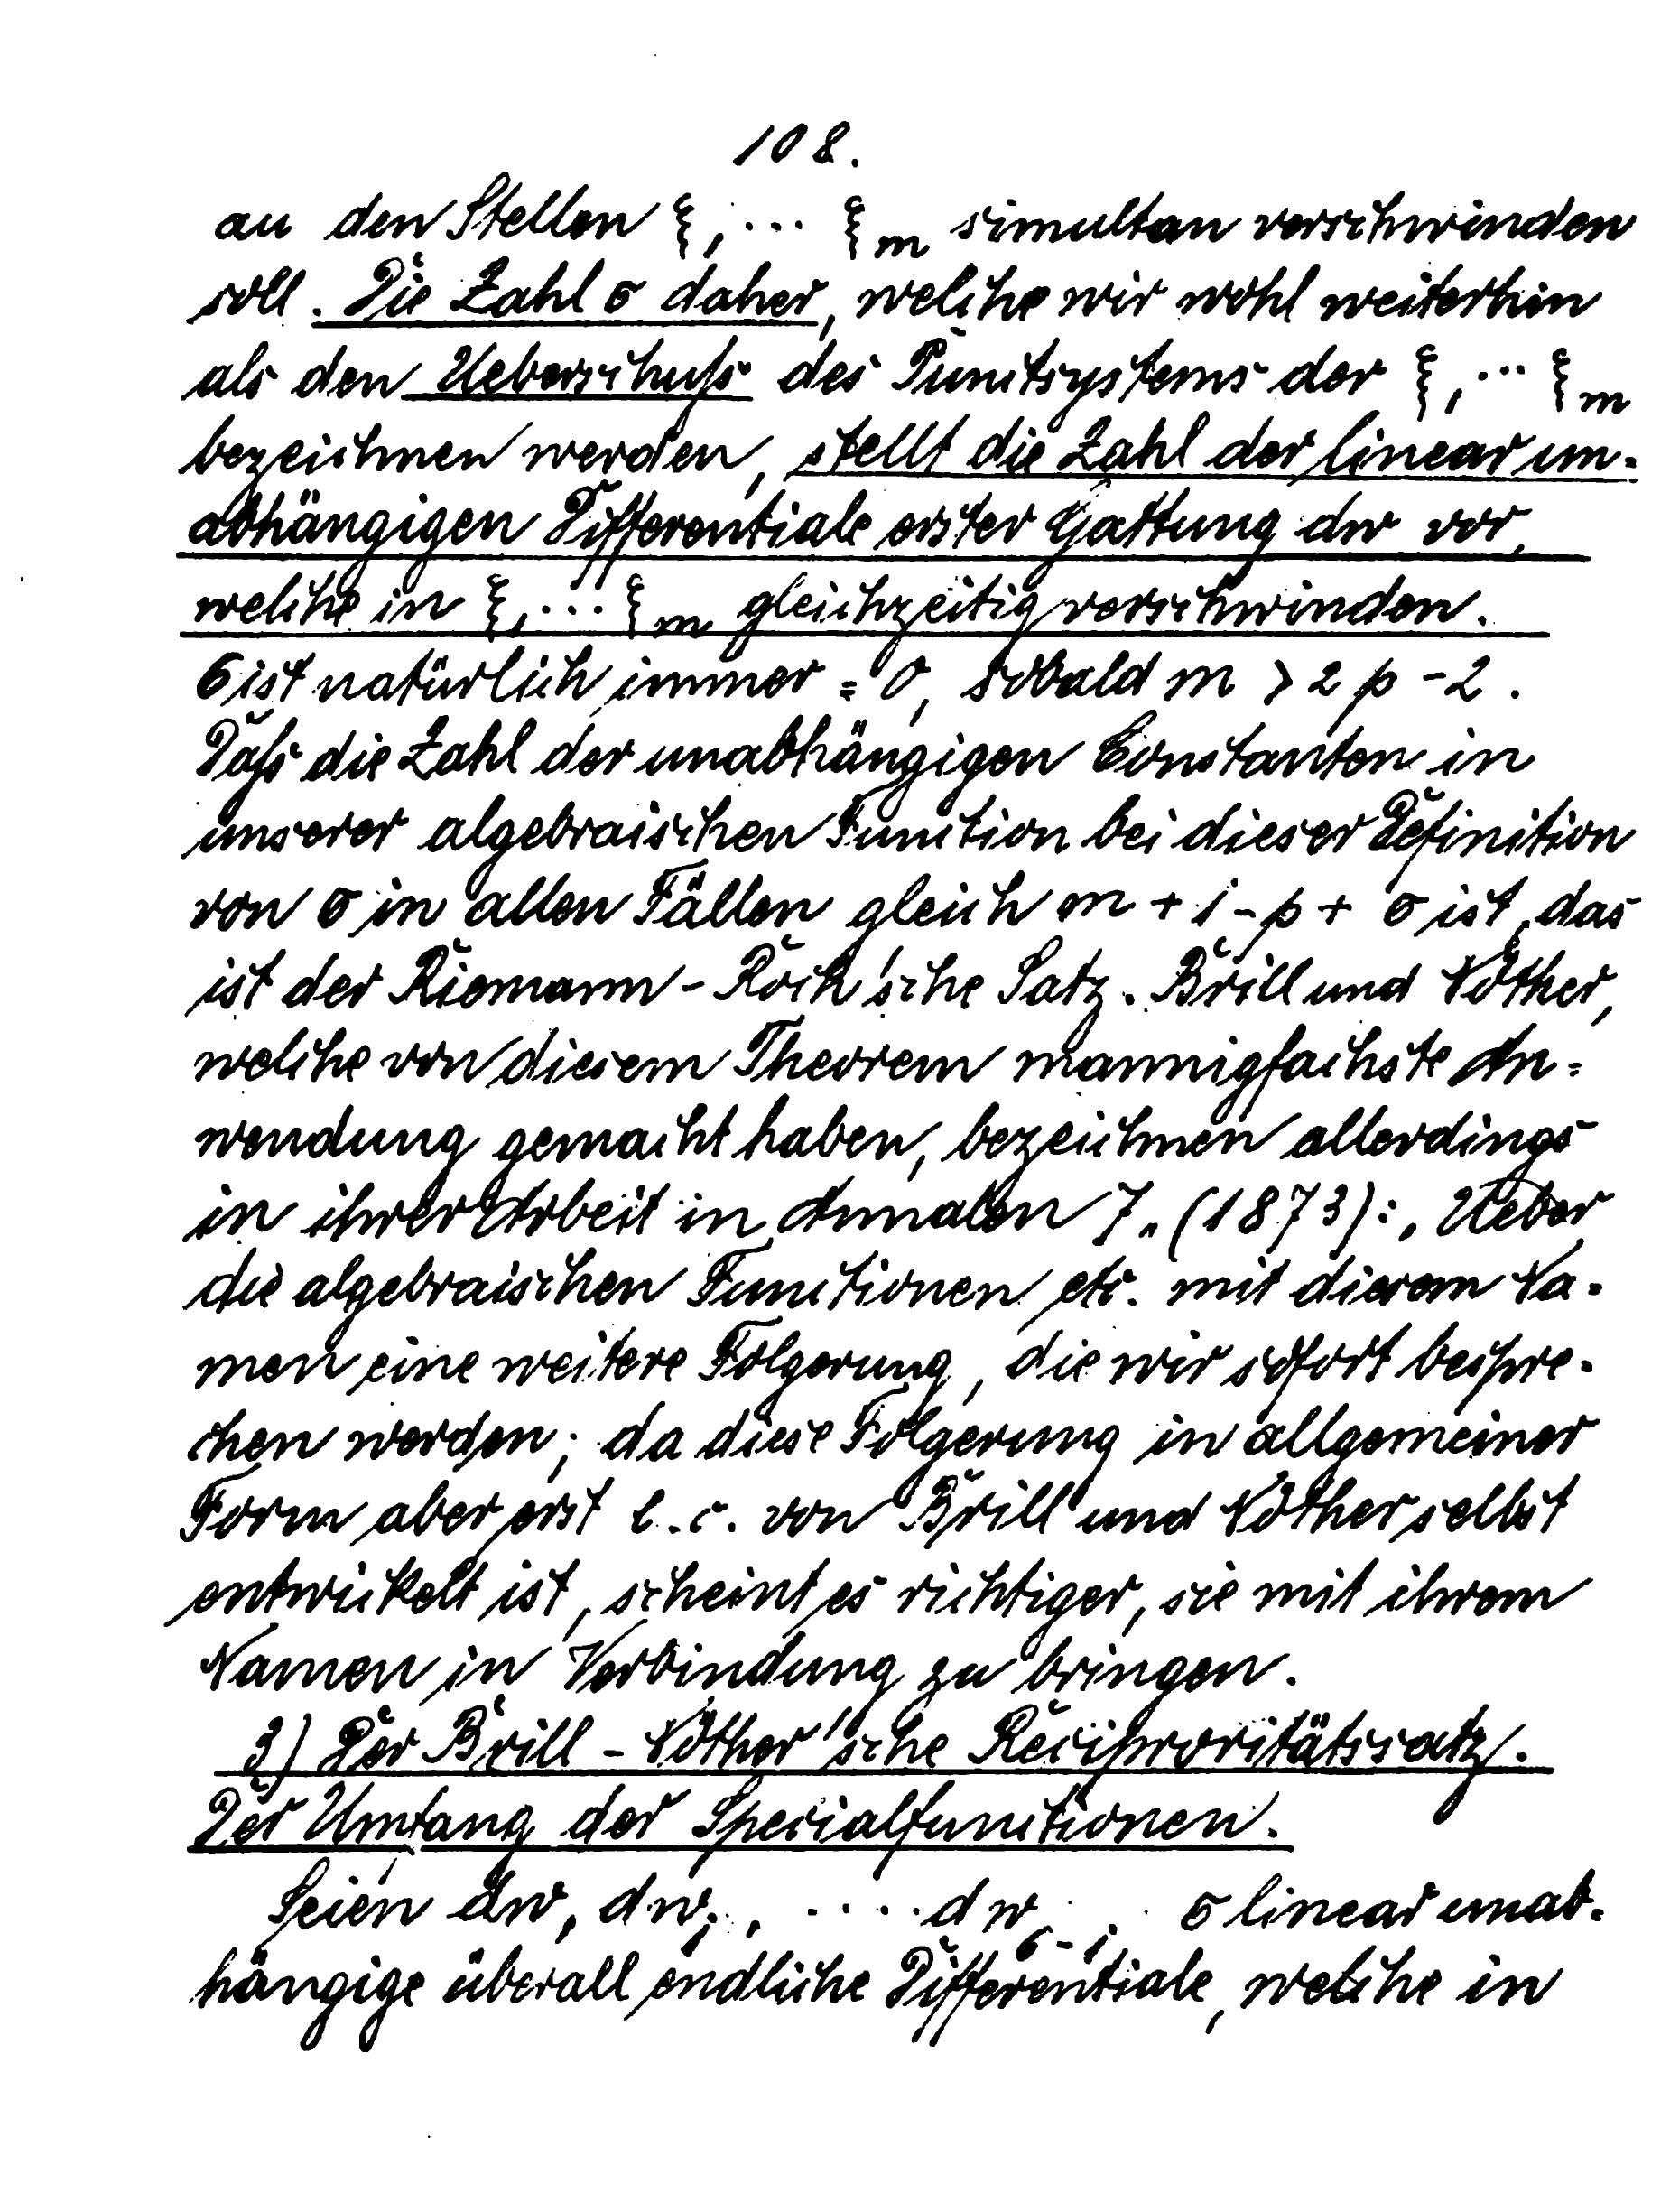 108.
an den Stellen ξ, ... ξm simultan verschwinden
soll. Die Zahl σ daher, welche wir wohl weiterhin
als den Ueberschuß des Punctsystems der ξ, ... ξm
bezeichnen werden, stellt die Zahl der linear un-
abhängigen Differentiale erster Gattung dw vor,
welche in ξ, ... ξm gleichzeitig verschwinden.
σ ist natürlich immer = 0, sobald m > 2p - 2.
Daß die Zahl der unabhängigen Constanten in
unserer algebraischen Function bei dieser Definition
von σ in allen Fällen gleich m + 1 - p + σ ist, das
ist der Riemann-Roch'sche Satz. Brill und Nöther,
welche von diesem Theorem mannigfachste An-
wendung gemacht haben, bezeichnen allerdings
in ihrer Arbeit in Annalen 7. (1873): „Ueber
die algebraischen Functionen etc. mit diesem Na-
men eine weitere Folgerung, die wir sofort bespre-
chen werden; da diese Folgerung in allgemeiner
Form aber erst l.c. von Brill und Nöther selbst
entwickelt ist, scheint es richtiger, sie mit ihrem
Namen in Verbindung zu bringen.
3) Der Brill-Nöther'sche Reciprocitätssatz.
Der Umfang der Specialfunctionen.
Seien dw, dw1, ..... dwσ-1 σ linear unab-
hängige überall endliche Differentiale, welche in